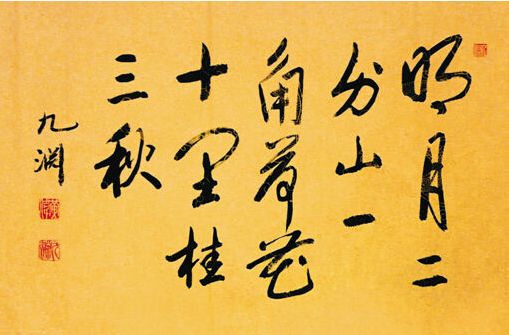 明月二
分山一
角荷花
十里桂
三秋
九渊